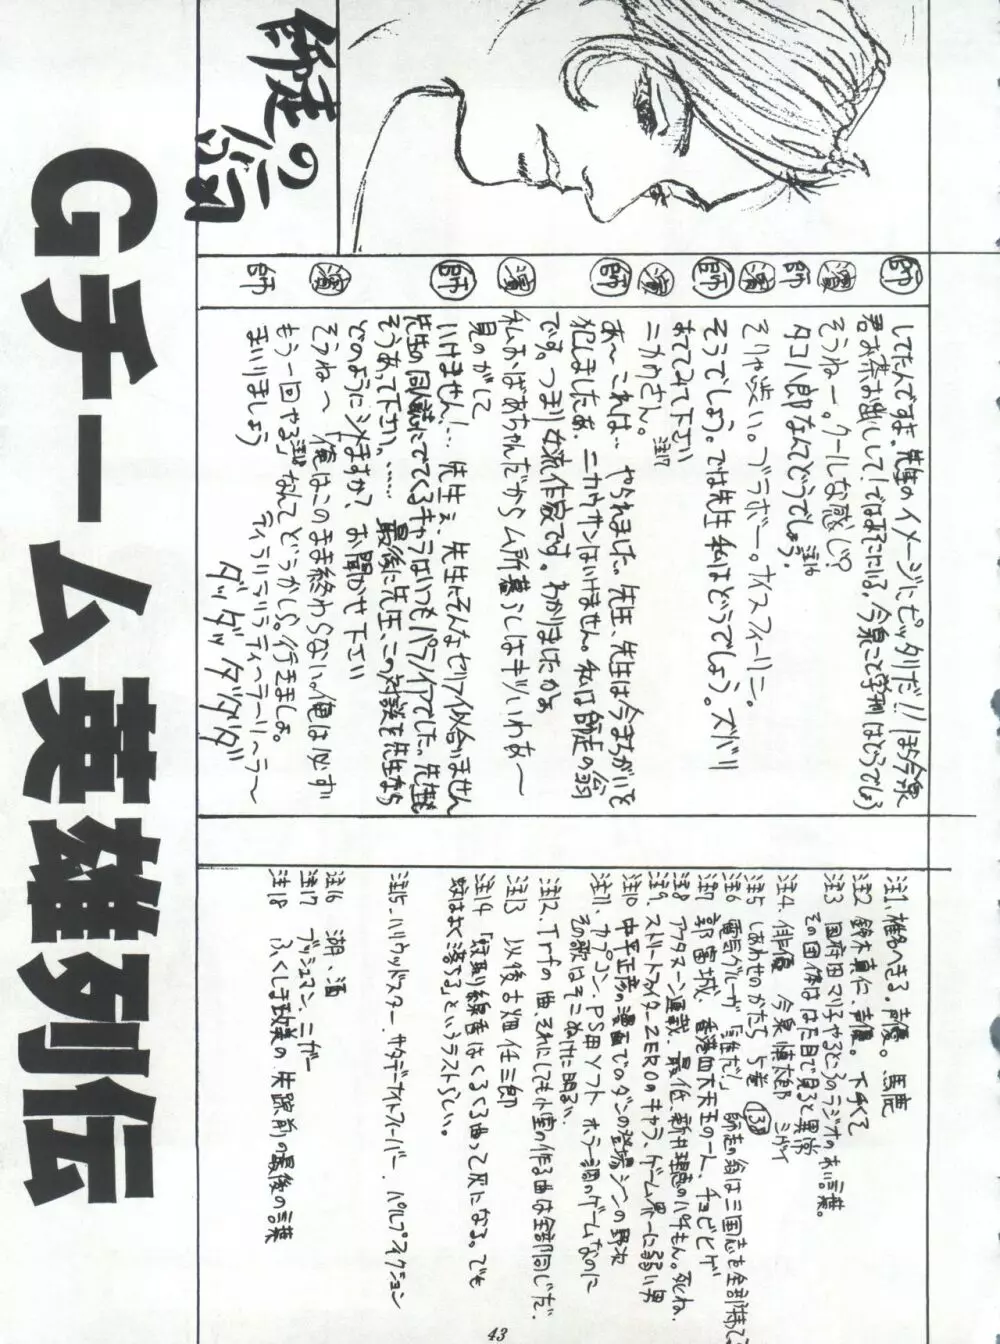 Gチーム英雄列伝
師走の翁
師 してたんですよ、先生のイメージにピッタリだ!!ほら今泉
君お茶お出しして!ではズバリ 今泉こと学洲はどうでしょう
濱 そうねー。クールな感じ?
師 タコハ郎なんてどうでしょう。注16
濱 そりゃ渋い。ブラボー。ナイスフィーリン。
師 そうでしょう。では先生 私はどうでしょう。ズバリ
あててみて下さい
濱 ニカウさん。注17
師 あ〜これは‥ やられました。先生、先生は今まちがいを
犯しましたよ。ニカウサンはいけません。私は師走の翁
です。つまり女流作家です。わかりましたかよ
濱 私おばあちゃんだからム所暮らしはキツいわあ〜
見のがして
師 いけません!… 先生ェ、先生にそんなセリフ似合いません
先生の同人誌にでてくるキャラはいつもパワフルでした‥先生も
そうあって下さい。…… 最後に先生、この対談を先生なら
どのようにシメますか? お聞かせ下さい
濱 そうね〜「俺はこのまま終わらないㇴ俺は必ず
もう一回やる」注18 なんてどうかしら。行きましょ。
師 まいりましょう ティラリラリラティ〜ラリ〜ラ〜
ダッダッダダダダ
注1 椎名へきる。声優。馬鹿
注2 鈴木真仁、声優。下手くそ
注3 国府田マリ子やるところのラジオの木信葉。
その団体ははた目で見ると異常
注4. 俳優 今泉慎太郎 ミザイ
注5 しあわせのかたち 5巻 138
注6 電気グルーヴ「誰だ!」師走の翁は三国志を全部様で
注7 郭富城、香港四大天王の一人、チョビヒゲ
注8 アフタヌーン連載、最低、新井理恵のパチもん。死ね。
注9. ストリートファイターZEROのキャラ、ゲーム界一に弱い男
注10 中平正彦の漫画でのダンの登場シーンの野次
注11、カプコン、PS用ソフト ホラー調のゲームなのに
その歌はそこぬけに明るい。
注12. Trfの曲、それにしても小室の作る曲は全部同じだ。
注13 以後古畑任三郎
注14「蚊取り線香はくるくる曲って灰になる。でも
蚊はまっすぐ落ちる」というラストらしい。
注15. ハリウッドスター、サタデーナイトフィーバー、パルプフィクション
注16 湖、酒
注17 ブッシュマン、ニガー
注18 ふくしま政美の失踪前の最後の言葉
43